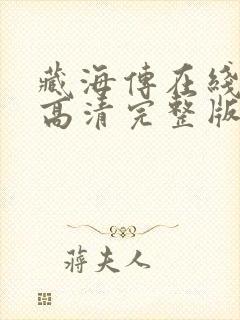 藏海傳在綫
高清完整版
蔣夫人